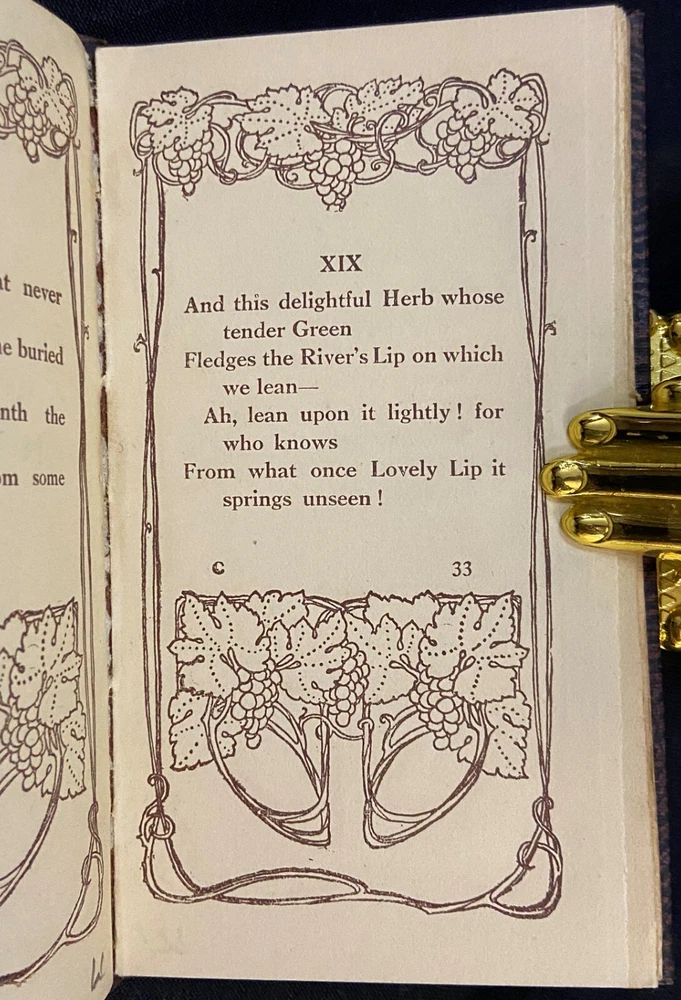 t never
e buried
nth the
m some
XIX
And this delightful Herb whose
tender Green
Fledges the River's Lip on which
we lean—
Ah, lean upon it lightly! for
who knows
From what once Lovely Lip it
springs unseen!
C 33